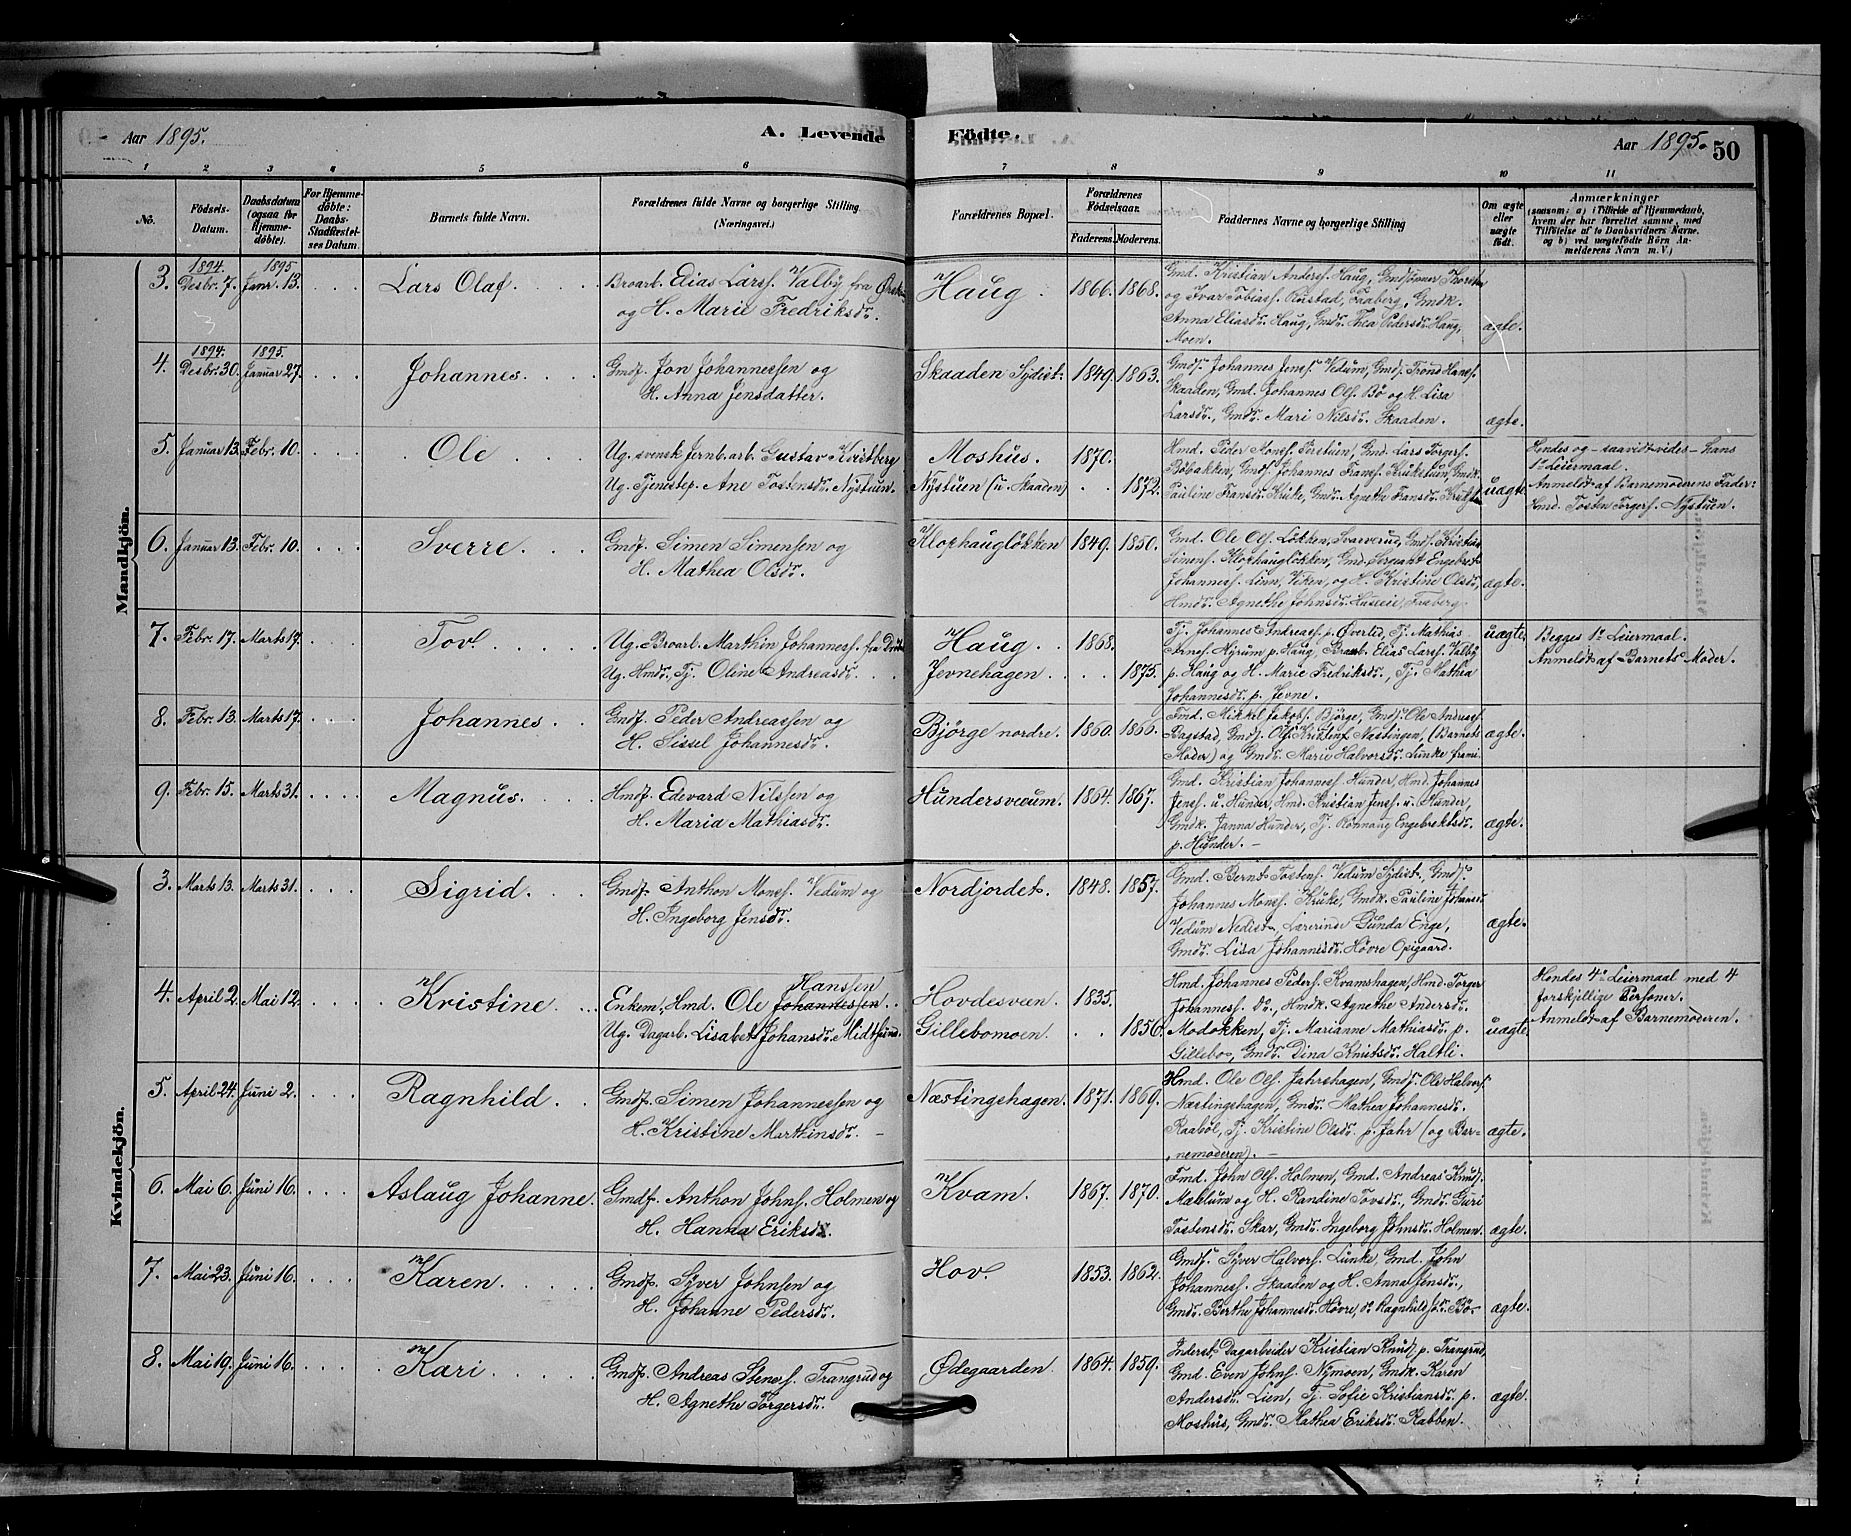 Aar 1895.
A. Levende
Födte.
Aar 1895. 50
1 2 3 4 5 6 7 8 9 10 11
No.
Födsels-Datum.
Daabsdatum (ogsaa for Hjemmedöbte).
For Hjemmedöbte: Daabs-Stadfæstelses Datum.
Barnets fulde Navn.
Forældrenes fulde Navne og borgerlige Stilling (Næringsvei.)
Forældrenes Bopæl.
Forældrenes Födselsaar.
Faderens. Moderens.
Faddernes Navne og borgerlige Stilling
Om ægte eller uægte födt.
Anmærkninger
(saasom: a) i Tilfælde af Hjemmedaab,
hvem der har forrettet samme, med
Tilföielse af to Daabsvidners Navne.
og b) ved uægtefödte Börn Anmelderens Navn m. V.)
Mandkjön.
3. 1894. Desbr. 7. 1895 Janr. 13. Lars Olaf.
Broarb. Elias Larss. Valby fra
og H. Marie Fredriksdr.
Haug. 1866. 1868.
Gmd. Kristian Anderss. Haug, Gmdsönner
og Ivar Tobiass. Rustad, Faaberg, Gmdk.
Anna Eliasdr. Haug, Gmdr. Thea Pedersdr. Haug,
Moen.
ægte.
4. 1894. Desbr. 30. 1895. Januar 27. Johannes.
Gmdf. Jon Johannessen og
H. Anna Jensdatter.
Skaaden Sydist. 1849. 1863.
Gmds. Johannes Jenss. Vedum, Gmds. Trond Hanss.
Skaaden, Gmd. Johannes Ols. Bö og H. Lisa
Larsdr., Gmdr. Mari Nilsdr. Skaaden.
ægte.
5. Januar 13. Febr. 10. Ole
Ug. svensk Jernb.arb. Gustav Kvistberg
Ug. Tjenestep. Ane Tostensdr. Nystuen.
Moshus. 1870.
Nystuen (u. Skaaden) 1872.
Hmd. Peder Monss. Perstuen, Gmd. Lars Torgers.
Böbakken, Gmds. Johannes Franss. Kruketuen, Gmdk.
Pauline Fransdr. Kruke, Gmdr. Agnethe Fransdr.
uægte
Hendes og - saavidt vides - hans
1ste Leiermaal.
Anmeldt af Barnemoderens Fader:
Hmd. Tosten Torgers. Nystuen.
6. Januar 13. Febr. 10. Sverre.
Gmdf. Simen Simensen og
H. Mathea Olsdr.
Klophauglökken 1849. 1850.
Gmd. Ole Ols. Lökken, Svarverud, Gmds. Kristian
Simens. Klophauglökken, Gmd. Sergeant Engebret
Johanness. Linn, Viken, og H. Kristine Olsdr.,
Hmdr. Agnethe Johnsdr. Faaberg.
ægte.
7. Febr. 17. Marts 17. Tov.
Ug. Broarb. Marthin Johanness. fra
Ug. Hmdr., Tj. Oline Andreasdr.
Haug. 1868.
Jevnehagen 1875.
Tj. Johannes Andreass. p. Överlid, Tj. Mathias
Arness. Nyrum p. Haug, Broarb. Elias Larss. Valby
p. Haug og H. Marie Fredriksdr., Tj. Mathea
Johannesdr. p. Jevne.
uægte.
Begges 1ste Leiermaal.
Anmeldt af Barnets Moder.
8. Febr. 13. Marts 17. Johannes.
Gmdf. Peder Andreassen og
H. Sissel Johannesdr.
Björge nordre. 1860. 1866.
Fmd. Mikkel Jakobs. Björge, Gmds. Ole Andreass.
Bagstad, Gmds. Ole Kristens. Næstingen, (Barnets
Moder) og Gmdr. Marie Halvorsdr. Lunke
ægte.
9. Febr. 15. Marts 31. Magnus.
Hmdf. Edevard Nilssen og
H. Maria Mathiasdr.
Hundersveeum. 1864. 1867.
Gmd. Kristian Johanness. Hunder, Hmd. Johannes
Jenss. u. Hunder, Hmd. Kristian Jenss. u. Hunder,
Gmdk. Janna Hunder, Tj. Rönnaug Engebrektsdr.
p. Hunder. –
ægte.
Kvindekjön.
3. Marts 13. Marts 31. Sigrid.
Gmdf. Anthon Monss. Vedum og
H. Ingeborg Jensdr.
Nordjordet. 1848. 1857.
Gmd. Bernt Tostens. Vedum Sydist, Gmds.
Johannes Monss. Kruke, Gmdk. Pauline Johansdr.
Vedum Nedist, Lærerinde Gunda Enge,
Gmdr. Lisa Johannesdr. Hovre Opigaard.
ægte.
4. April 2. Mai 12. Kristine.
Hansen
Enkem., Hmd. Ole Johannessen.
Ug. Dagarb. Lisabet Johansdr. Midtlund.
Hovdesveen. 1835.
Gillebomoen. 1856.
Hmd. Johannes Peders. Kvamshagen, Hmd. Torger
Johanness. Do., Hmdk. Agnethe Andersdr.
Modokken, Tj. Marianne Mathiasdr. p.
Gillebo, Gmdr. Dina Knutsdr. Haltli.
uægte
Hendes 4de Leiermaal med 4
forskjellige Personer.
Anmeldt af Barnemoderen.
5. April 24. Juni 2. Ragnhild.
Gmdf. Simen Johannessen og
H. Kristine Marthinsdr. –
Næstingshagen. 1871. 1869.
Hmd. Ole Ols. Jahrshagen, Gmds. Ole Halvors.
Næstingshagen, Gmdr. Mathea Johannesdr.
Raaböl, Tj. Kristine Olsdr. p. Jahr (og Barnemoderen). –
ægte.
6. Mai 6. Juni 16. Aslaug Johanne.
Gmdf. Anthon Johns. Holmen og
H. Hanna Eriksdr.
Kvam. 1867. 1870.
Fmd. John Ols. Holmen, Gmd. Andreas Knuds.
Mæhlum og H. Randine Tovsdr., Gmdr. Guri
Tostensdr. Skar, Gmdr. Ingeborg Johnsdr. Holmen.
ægte.
7. Mai 23. Juni 16. Karen.
Gmdf. Syver Johnsen og
H. Johanne Pedersdr.
Hov. 1853. 1862.
Gmds. Syver Halvors. Lunke, Gmd. John
Johanness. Skaaden og H. Anna Jensdr.,
Gmdr. Berthe Johannesdr. Hovre, do Ragnhild
ægte.
8. Mai 19. Juni 16. Kari
Gmdf. Andreas Stenss. Trangrud og
H. Agnethe Torgersdr.
Ödegaarden 1864. 1859.
Inderst Dagarbeider Kristian Knuds. p. Trangrud,
Gmd. Even Johns. Nymoen, Gmdk. Karen
Andersdr. Lien, Tj. Sofie Kristiansdr. p.
Moshus, Gmdr. Mathea Eriksdr. Rabben.
ægte.